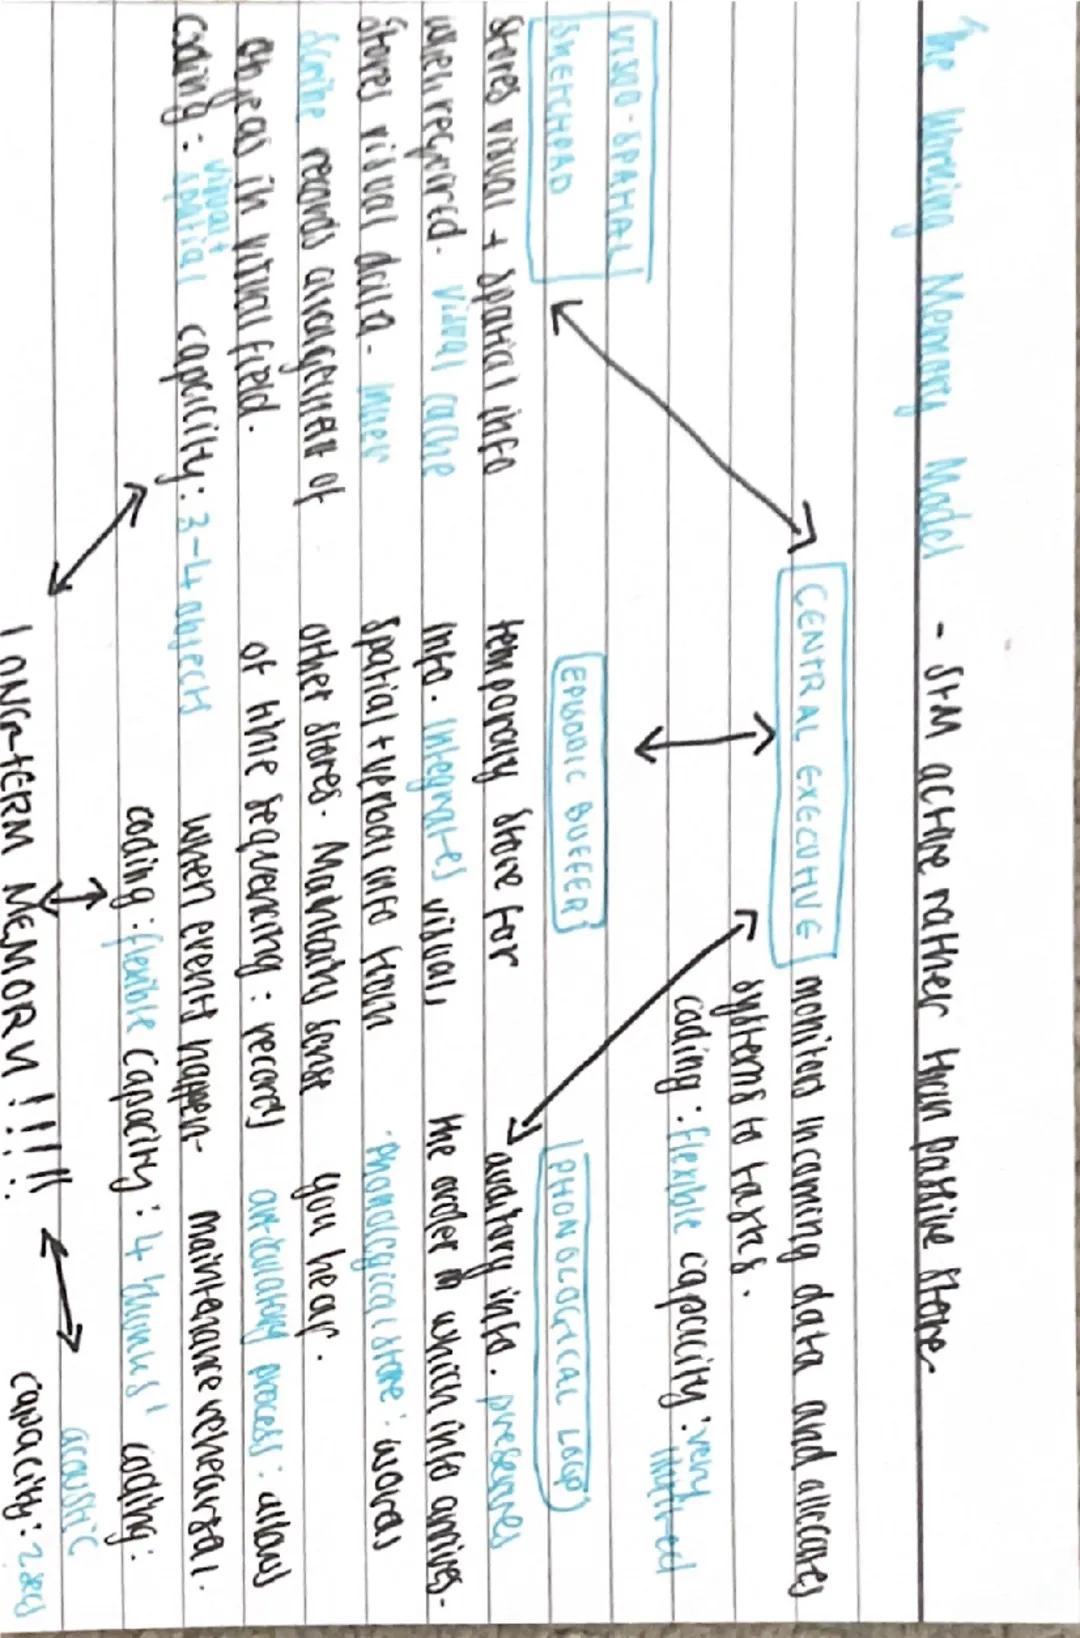 The Working Memory Model - STM active rather than passive store.
CENTRAL EXECUTIVE monitors incoming data and allocates
systems to tasks.
coding: flexible capacity: very
limited
VISUO-SPATIAL
SKETCHPAD
stores visual + spatial info
when required. visual cache
stores visual data. inner
scribe records arrangement of
objects in visual field.
coding: visual +
spatial capacity: 3-4 objects
EPISODIC BUFFER
temporary store for
info. integrates visual,
spatial + verbal info from
other stores. Maintains sense
of time sequencing: records
when events happen.
coding: flexible capacity: 4 'chunks'
PHONOLOGICAL LOOP
auditory info. preserves
the order in which info arrives.
phonological store: words
you hear.
articulatory process: allows
maintenance rehearsal.
coding:
acoustic
capacity: 2 secs
LONG-TERM MEMORY !!!!